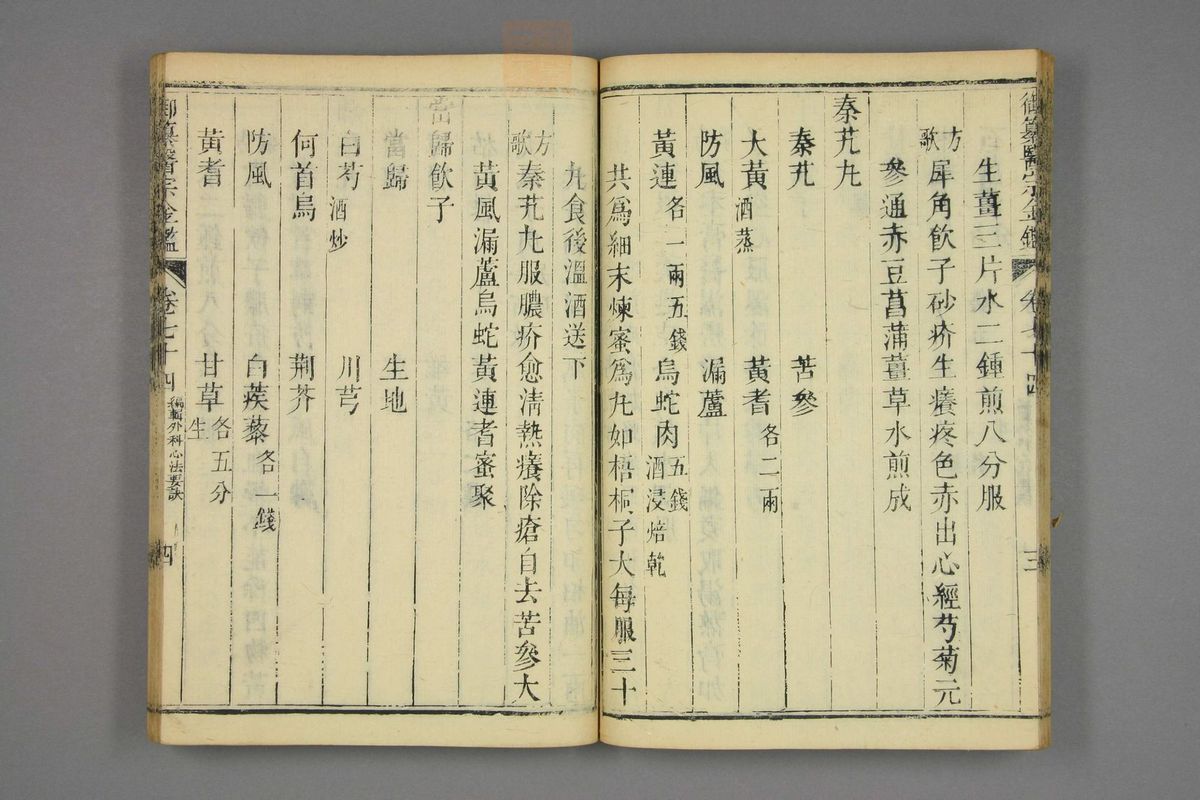 御纂醫宗金鑑 卷七十四 三
生薑三片水二鍾煎八分服
方歌 犀角飲子砂疥生癢疼色赤出心經芍菊元
參通赤豆菖蒲薑草水煎成
秦艽丸
秦艽 苦參
大黃酒蒸 黃耆各二兩
防風 漏蘆
黃連各一兩五錢 烏蛇肉五錢酒浸焙乾
共爲細末煉蜜爲丸如梧桐子大每服三十
丸食後溫酒送下
方歌 秦艽丸服膿疥愈淸熱癢除瘡自去苦參大
黃風漏蘆烏蛇黃連耆蜜聚
當歸飲子
當歸 生地
白芍酒炒 川芎
何首烏 荆芥
防風 白蒺藜各一錢
黃耆 甘草生各五分
御纂醫宗金鑑 卷七十四 編輯外科心法要訣 四